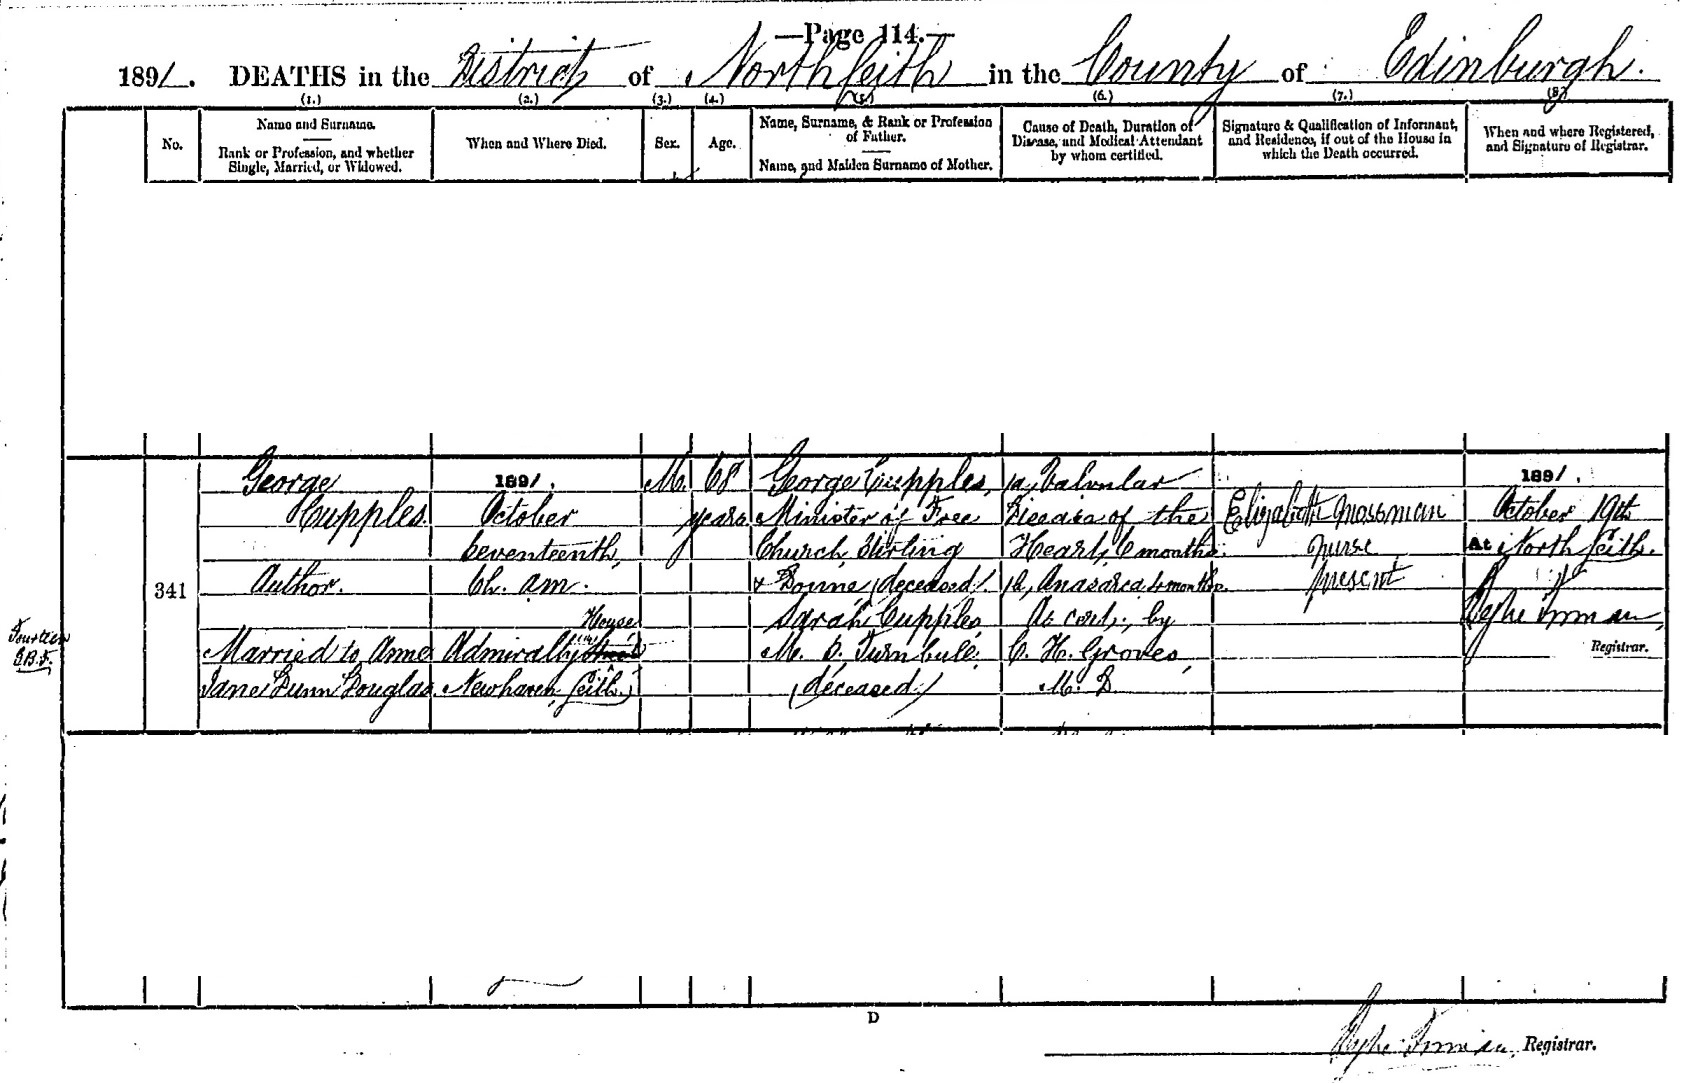 —Page 114.—
1891. DEATHS in the District of North Leith in the County of Edinburgh.
(1.) (2.) (3.) (4.) (5.) (6.) (7.) (8.)
No.
Name and Surname.
Rank or Profession, and whether
Single, Married, or Widowed.
When and Where Died.
Sex.
Age.
Name, Surname, & Rank or Profession
of Father.
Name, and Maiden Surname of Mother.
Cause of Death, Duration of
Disease, and Medical Attendant
by whom certified.
Signature & Qualification of Informant,
and Residence, if out of the House in
which the Death occurred.
When and where Registered,
and Signature of Registrar.
341
George
Cupples.
Author.
Married to Anne
Jane Dunn Douglas
1891.
October
Seventeenth,
6h. am.
House
Admiralty
Newhaven, Leith.
M.
68
years
George Cupples,
Minister of Free
Church, Stirling
& Doune (deceased).
Sarah Cupples,
M. S. Turnbull.
(deceased)
a, Valvular
Disease of the
Heart, 6 months.
b, Anasarca 4 months.
As cert., by
C. H. Groves,
M. D
Elizabeth Mossman
nurse
present
1891.
October 19th
At North Leith.
Registrar.
Fourteen
D
Registrar.